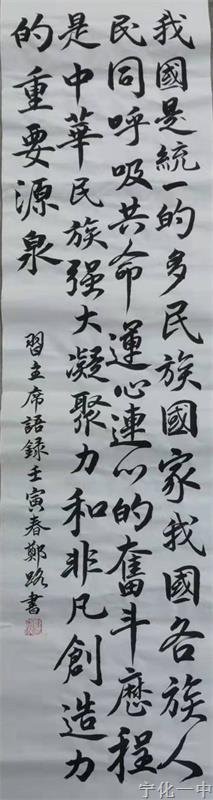 我國是統一的多民族國家我國各族人
民同呼吸共命運心連心的奮斗歷程
是中華民族强大凝聚力和非凡創造力
的重要源泉
習主席語録壬寅春鄭路書
宁化一中